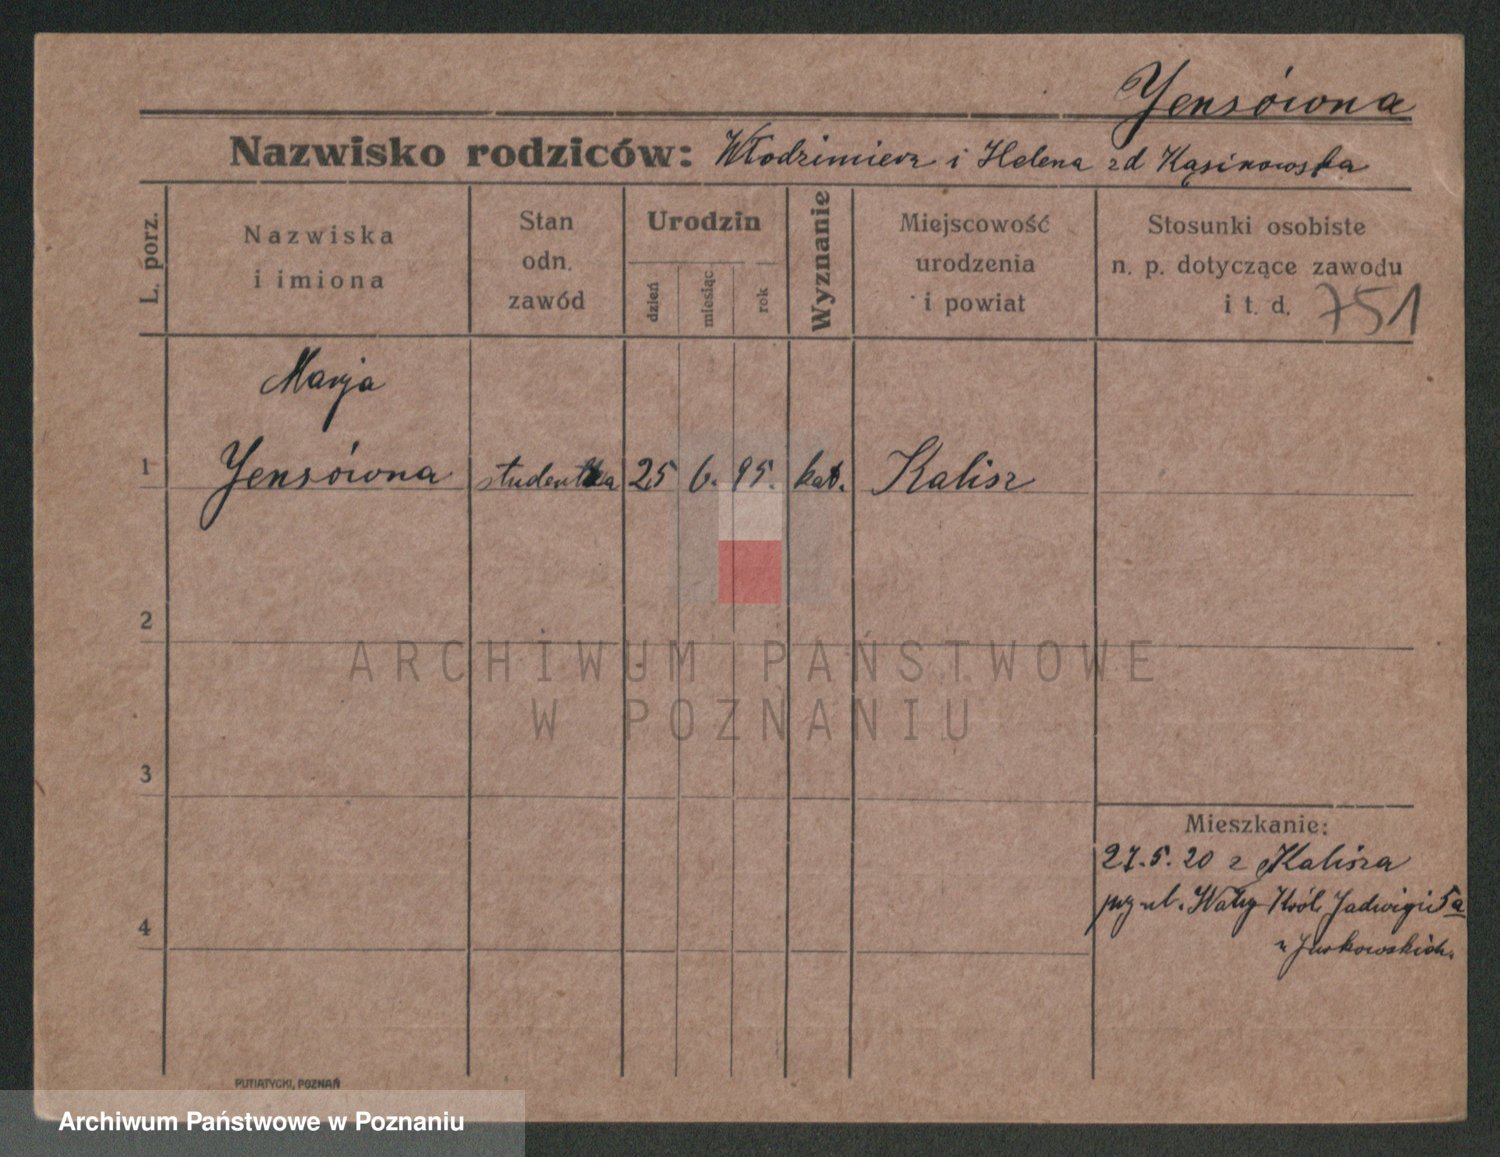 Yensówna
Nazwisko rodziców: Włodzimierz i Helena zd Kąsinowska
L. porz.
Nazwiska
i imiona
Stan
odn.
zawód
Urodzin
dzień
miesiąc
rok
Wyznanie
Miejscowość
urodzenia
i powiat
Stosunki osobiste
n. p. dotyczące zawodu
i t. d. 751
Marja
1 Yensówna studentka 25 6. 95. kat. Kalisz
2
ARCHIWUM PAŃSTWOWE
W POZNANIU
3
Mieszkanie:
27.5.20 z Kalisza
przy ul. Wały Król. Jadwigi 5a
4
u Jurkowskich.
PUTIATYCKI, POZNAŃ
Archiwum Państwowe w Poznaniu